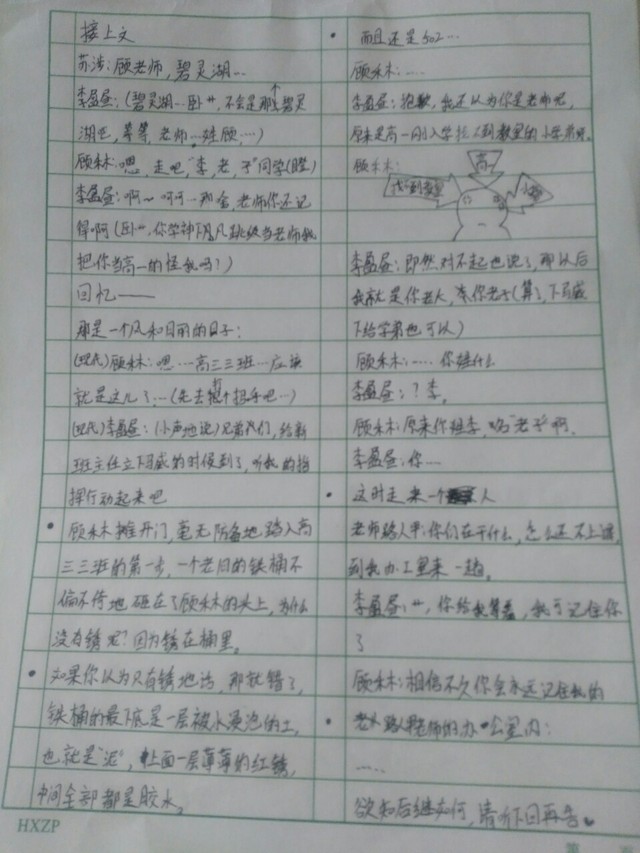 接上文
苏涉:顾老师,碧灵湖…
李盈昼:(碧灵湖…卧艹,不会是那个碧灵
湖吧,等等,老师…姓顾,…)
顾未林:嗯,走吧,"李,老,子"同学(瞪)
李盈昼:啊~呵呵…那啥,老师你还记
得啊(卧艹,你学神下凡跳级当老师我
把你当高一的怪我吗?)
回忆——
那是一个风和日丽的日子:
顾未林:嗯…高三三班…应该
就是这儿了…(先去报个招呼吧…)
李盈昼:(小声地说)兄弟我们,给新
班主任立下马威的时候到了,听我的指
挥行动起来吧
• 顾未林推开门,毫无防备地踏入高
三三班的第一步,一个老旧的铁桶不
偏不倚地砸在了顾未林的头上,为什么
没有锈呢?因为锈在桶里。
• 如果你以为只有锈地话,那就错了,
铁桶的最下底是一层被水浸泡的土,
也就是"泥",上面一层薄薄的红锈,
中间全部都是胶水。
• 而且还是502…
顾未林:……
李盈昼:抱歉,我还以为你是老师呢,
原来是高一刚入学找不到教室的小学弟呀。
顾未林:
找不到教室
高一
小
李盈昼:即然对不起也说了,那以后
我就是你老大,李你老子(算了,下马威
下给学弟也可以)
顾未林:……你姓什么
李盈昼:?李,
顾未林:原来你姓李,鸣"老子"啊.
李盈昼:你…
• 这时走来一个人
老师路人甲:你们在干什么,怎么还不上课,
到我办工室来一趟。
李盈昼:艹,你给我等着,我可记住你
了
顾未林:相信不久你会永远记住我的
• 老师的办公室内:
……
欲知后继如何,请听下回再告♥
HXZP
第